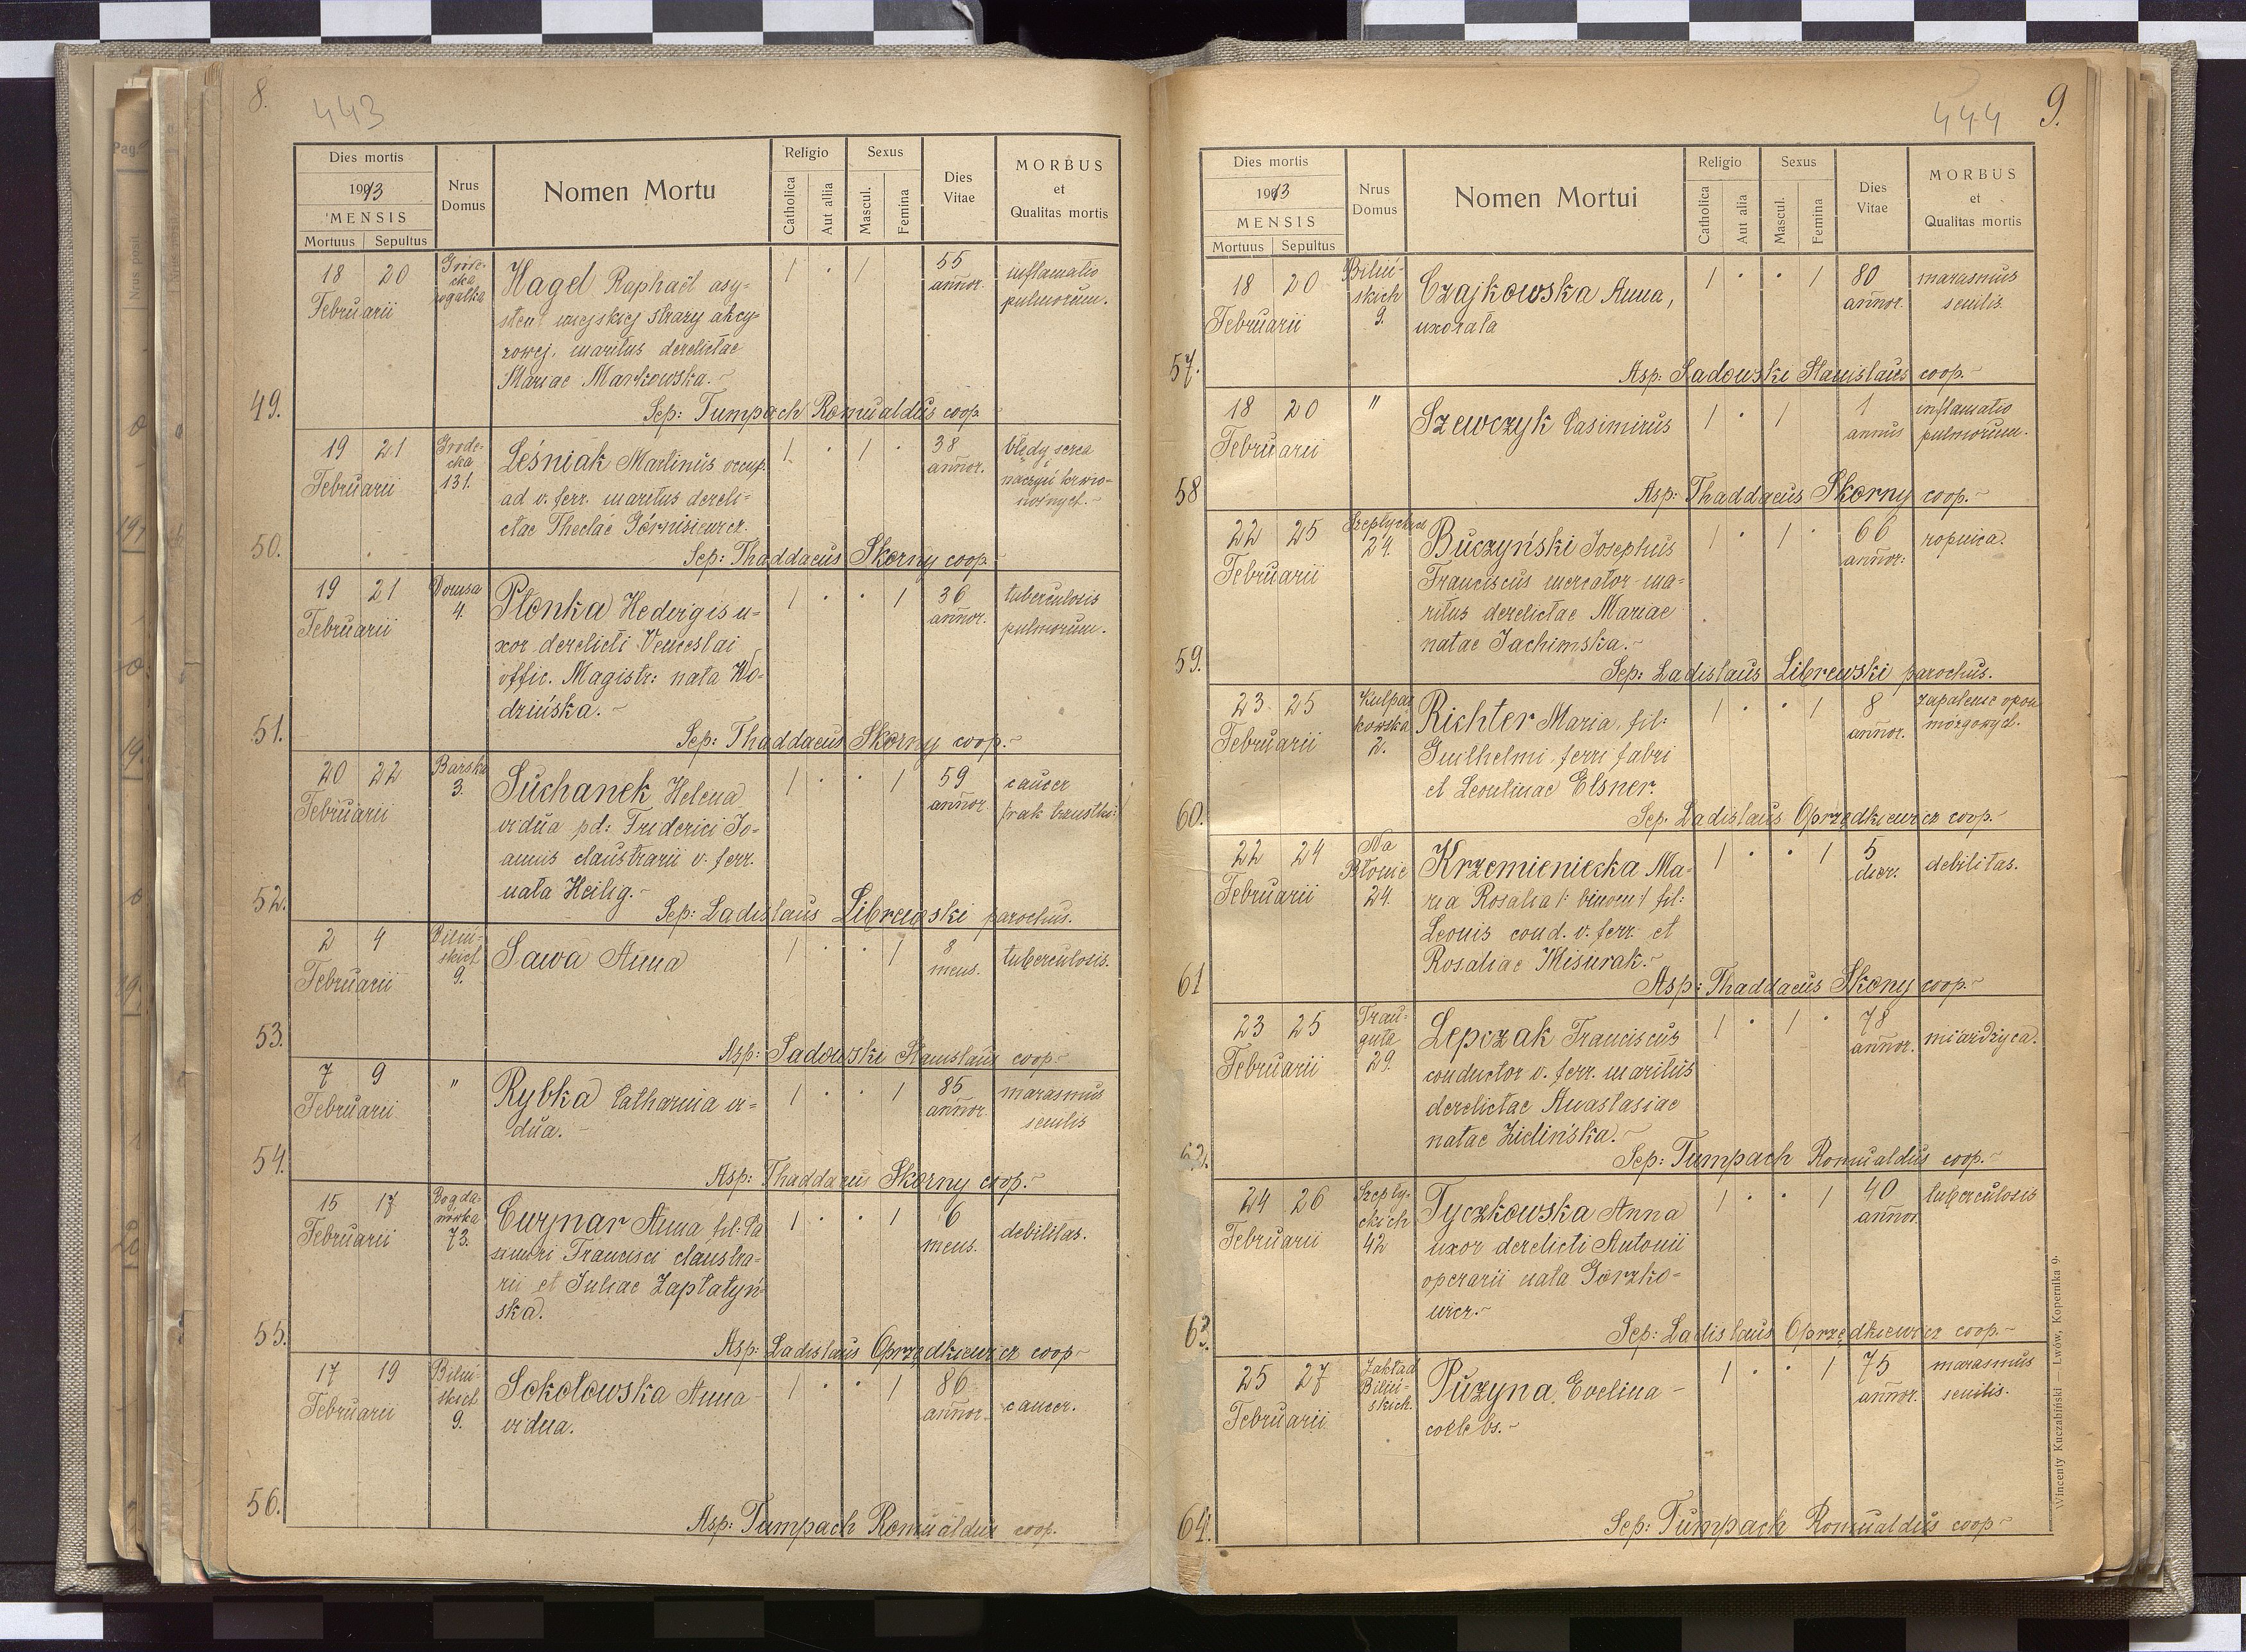 8.
443
Dies mortis
1913
MENSIS
Mortuus Sepultus
Nrus
Domus
Nomen Mortu
Religio
Catholica
Aut alia
Sexus
Mascul.
Femina
Dies
Vitae
MORBUS
et
Qualitas mortis
49.
18 20
Februarii
Gróde-
cka
rogatka
Hagel Raphaël asy-
stent miejskiej straży akcy-
zowej, maritus derelictae
Mariae Markowska.
1 · 1
55
annor.
inflamatio
pulmorum.
Sep: Tumpach Romualdus coop.
50.
19 21
Februarii
Grode-
cka
131.
Leśniak Martinus occup.
ad v. ferr. maritus dereli-
ctae Theclae Górnisiewicz.
1 · 1 ·
38
annor.
błędy serca
naczyń krwio-
nośnych.
Sep: Thaddaeus Skorny coop.
51.
19 21
Februarii
Dorusa
4.
Płonka Hedvigis u-
xor derelicti Venceslai
offic. Magistr: nata Wo-
dzińska.
1 · · 1
36
annor.
tuberculosis
pulmorum.
Sep: Thaddaeus Skorny coop.
52.
20 22
Februarii
Barska
3.
Suchanek Helena
vidua pd: Friderici Jo-
annis claustrarii v. ferr.
nata Heilig.
1 · · 1
59
annor.
cancer
/:rak trzustki:/
Sep: Ladislaus Librewski parochus.
53.
2 4
Februarii
Biliń-
skich
9.
Sawa Anna
1 · · 1
8
mens.
tuberculosis.
Asp: Sadowski Stanislaus coop.
54.
7 9
Februarii
"
Rybka Catharina vi-
dua.
1 · · 1
85
annor.
marasmus
senilis
Asp: Thaddaeus Skorny coop.
55.
15 17
Februarii
Bogda-
nówka
73.
Curznar Anna fil: Ca
simiri Francisci claustra-
rii et Juliae Zapłatyń-
ska.
1 · · 1
6
mens.
debilitas.
Asp: Ladislaus Oprządkiewicz coop
56.
17 19
Februarii
Biliń-
skich
9.
Sokołowska Anna
vidua.
1 · · 1
86
annor.
cancer.
Asp: Tumpach Romualdus coop.
444
9.
Dies mortis
1913
MENSIS
Mortuus Sepultus
Nrus
Domus
Nomen Mortui
Religio
Catholica
Aut alia
Sexus
Mascul.
Femina
Dies
Vitae
MORBUS
et
Qualitas mortis
57.
18 20
Februarii
Biliń-
skich
9.
Czajkowska Anna,
uxorata
1 · · 1
80
annor.
marasmus
senilis.
Asp: Sadowski Stanislaus coop.
58
18 20
Februarii
"
Szewczyk Casimirus
1 · 1
1
annus
inflamatio
pulmorum.
Asp: Thaddaeus Skorny coop.
59.
22 25
Februarii
Szeptyckich
24.
Buczyński Josephus
Franciscus mercator ma-
ritus derelictae Mariae
natae Jachimska.
1 · 1 ·
66
annor:
ropnica.
Sep: Ladislaus Librewski parochus.
60.
23 25
Februarii
Kulpar
kowska
2.
Richter Maria, fil:
Guilhelmi ferri fabri
et Leontinae Elsner.
1 · · 1
8
annor.
zapalenie opon
mózgowych.
Sep. Ladislaus Oprządkiewicz coop.
61
22 24
Februarii
Na
Błonie
24.
Krzemieniecka Ma-
ria Rosalia /: binom / fil:
Leonis cond. v. ferr. et
Rosaliae Misurak.
1 · · 1
5
dier.
debilitas.
Asp: Thaddaeus Skorny coop.
62.
23 25
Februarii
Trau-
guta
29.
Lepczak Franciscus
conductor v. ferr. maritus
derelictae Anastasiae
natae Zielińska.
1 · 1 ·
78
annor.
miażdżyca.
Sep: Tumpach Romualdus coop.
63.
24 26
Februarii
Szepty-
ckich
42
Tyczkowska Anna
uxor derelicti Antonii
operarii nata Gorzko-
wicz.
1 · · 1
40
annor.
tuberculosis
Sep: Ladislaus Oprządkiewicz coop.
64.
25 27
Februarii
Zakład
Biliń-
skich.
Puzyna Evelina -
coelebs.
1 · · 1
75
annor.
marasmus
senilis.
Sep: Tumpach Romualdus coop
Wincenty Kuczabiński — Lwów, Kopernika 9.